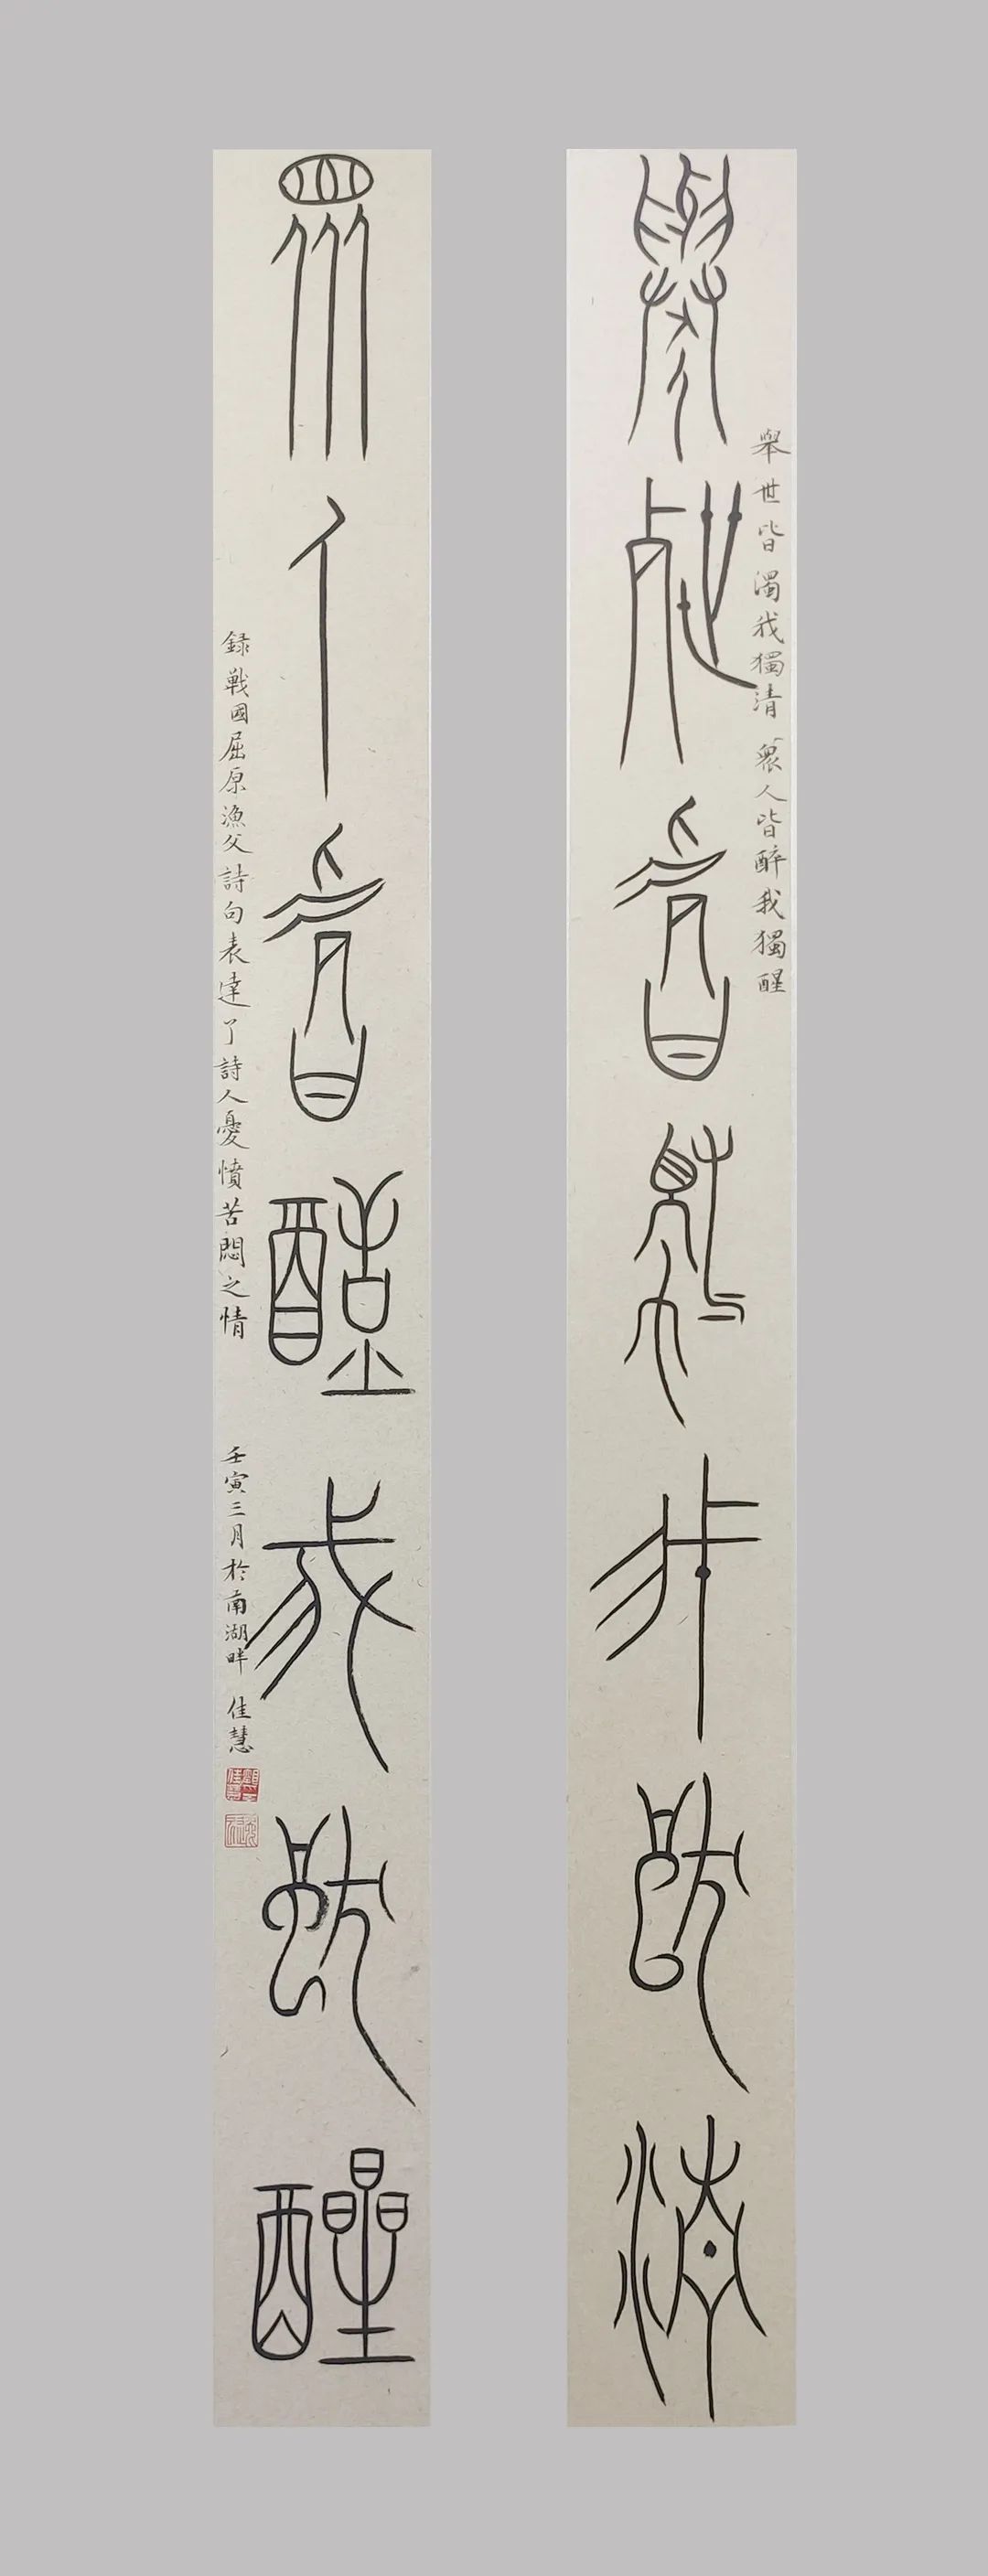 舉世皆濁我獨清
舉世皆濁我獨清 衆人皆醉我獨醒
衆人皆醉我獨醒
録戰國屈原漁父詩句表達了詩人憂憤苦悶之情
壬寅三月於南湖畔 佳慧